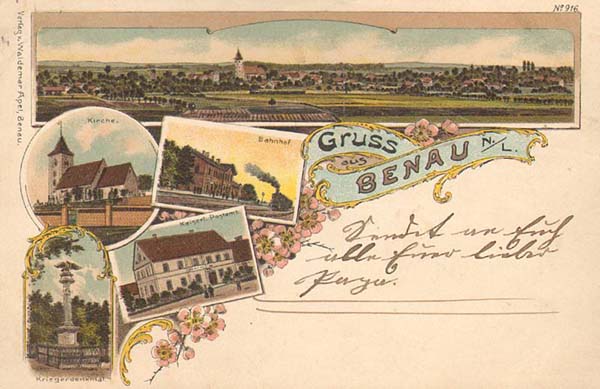 No 916.
Verlag v. Waldemar Apel, Benau.
Kirche.
Bahnhof
Gruss
aus
BENAU N./L.
Kaiserl. Postamt
Kriegerdenkmal.
Sendet an Euch
alle Euer lieber
Papa.